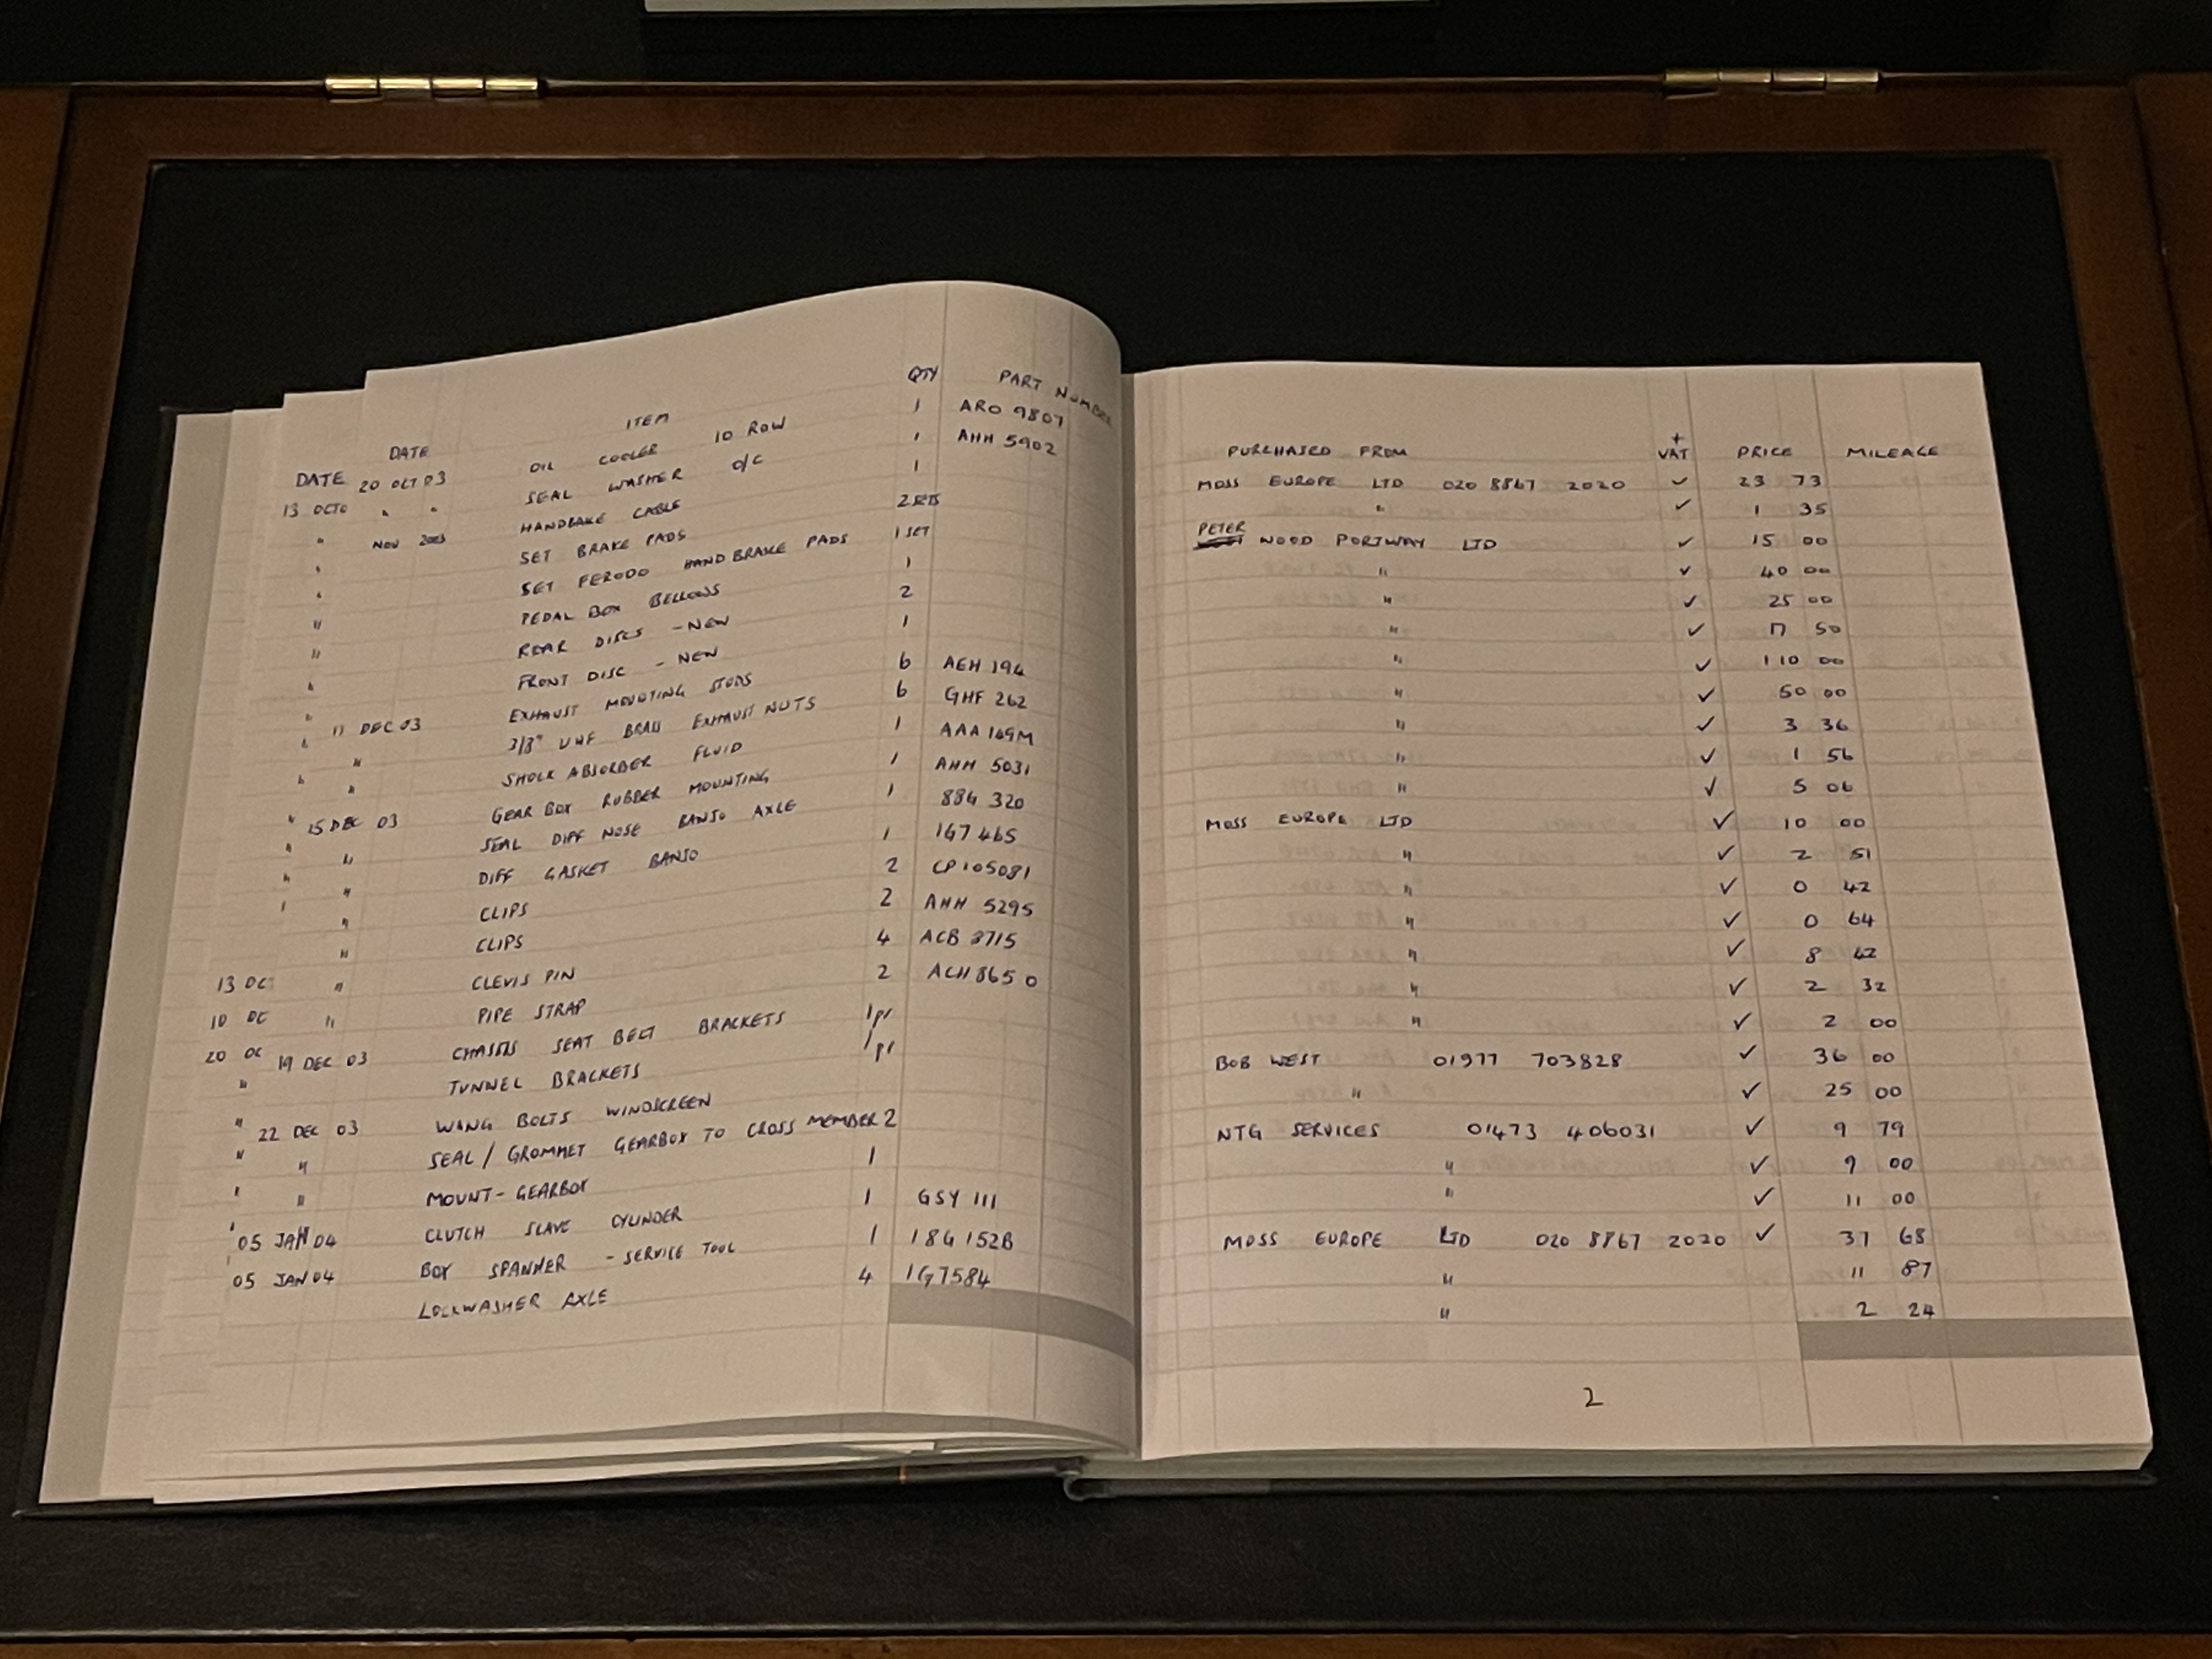 DATE ITEM QTY PART NUMBER
20 OCT 03 OIL COOLER 10 ROW 1 ARO 9807
" " SEAL WASHER O/C 1 AHH 5902
NOV 2003 HANDBAKE CABLE 1
SET BRAKE PADS 2 SETS
SET FERODO HANDBRAKE PADS 1 SET
PEDAL BOX BELLOWS 1
REAR DISCS - NEW 2
FRONT DISC - NEW 1
11 DEC 03 EXHAUST MOUNTING STUDS 6 AEH 194
" 3/8" UNF BRASS EXHAUST NUTS 6 GHF 262
" SHOCK ABSORBER FLUID 1 AAA 149M
15 DEC 03 GEAR BOX RUBBER MOUNTING 1 AHH 5031
" SEAL DIFF NOSE BANJO AXLE 1 88G 320
" DIFF GASKET BANJO 1 1G7 465
" CLIPS 2 CP 105081
" CLIPS 2 AHH 5295
" CLEVIS PIN 4 ACB 8715
" PIPE STRAP 2 ACH 8650
19 DEC 03 CHASSIS SEAT BELT BRACKETS 1pr
TUNNEL BRACKETS 1pr
22 DEC 03 WING BOLTS WINDSCREEN
" SEAL / GROMMET GEARBOX TO CROSS MEMBER 2
" MOUNT - GEARBOX 1
05 JAN 04 CLUTCH SLAVE CYLINDER 1 GSY 111
05 JAN 04 BOX SPANNER - SERVICE TOOL 1 18G 152B
LOCKWASHER AXLE 4 1G7584
DATE
13 OCTO
"
"
"
"
"
"
"
"
"
"
"
"
13 OC
10 OC
20 OC
"
"
"
"
PURCHASED FROM + VAT PRICE MILEAGE
MOSS EUROPE LTD 020 8867 2020 ✓ 23 73
" ✓ 1 35
PETER WOOD PORTWAY LTD ✓ 15 00
" ✓ 40 00
" ✓ 25 00
" ✓ 17 50
" ✓ 110 00
" ✓ 50 00
" ✓ 3 36
" ✓ 1 56
" ✓ 5 06
MOSS EUROPE LTD ✓ 10 00
" ✓ 2 51
" ✓ 0 42
" ✓ 0 64
" ✓ 8 42
" ✓ 2 32
" ✓ 2 00
BOB WEST 01977 703828 ✓ 36 00
" ✓ 25 00
NTG SERVICES 01473 406031 ✓ 9 79
" ✓ 9 00
" ✓ 11 00
MOSS EUROPE LTD 020 8867 2020 ✓ 37 68
" 11 87
" 2 24
2